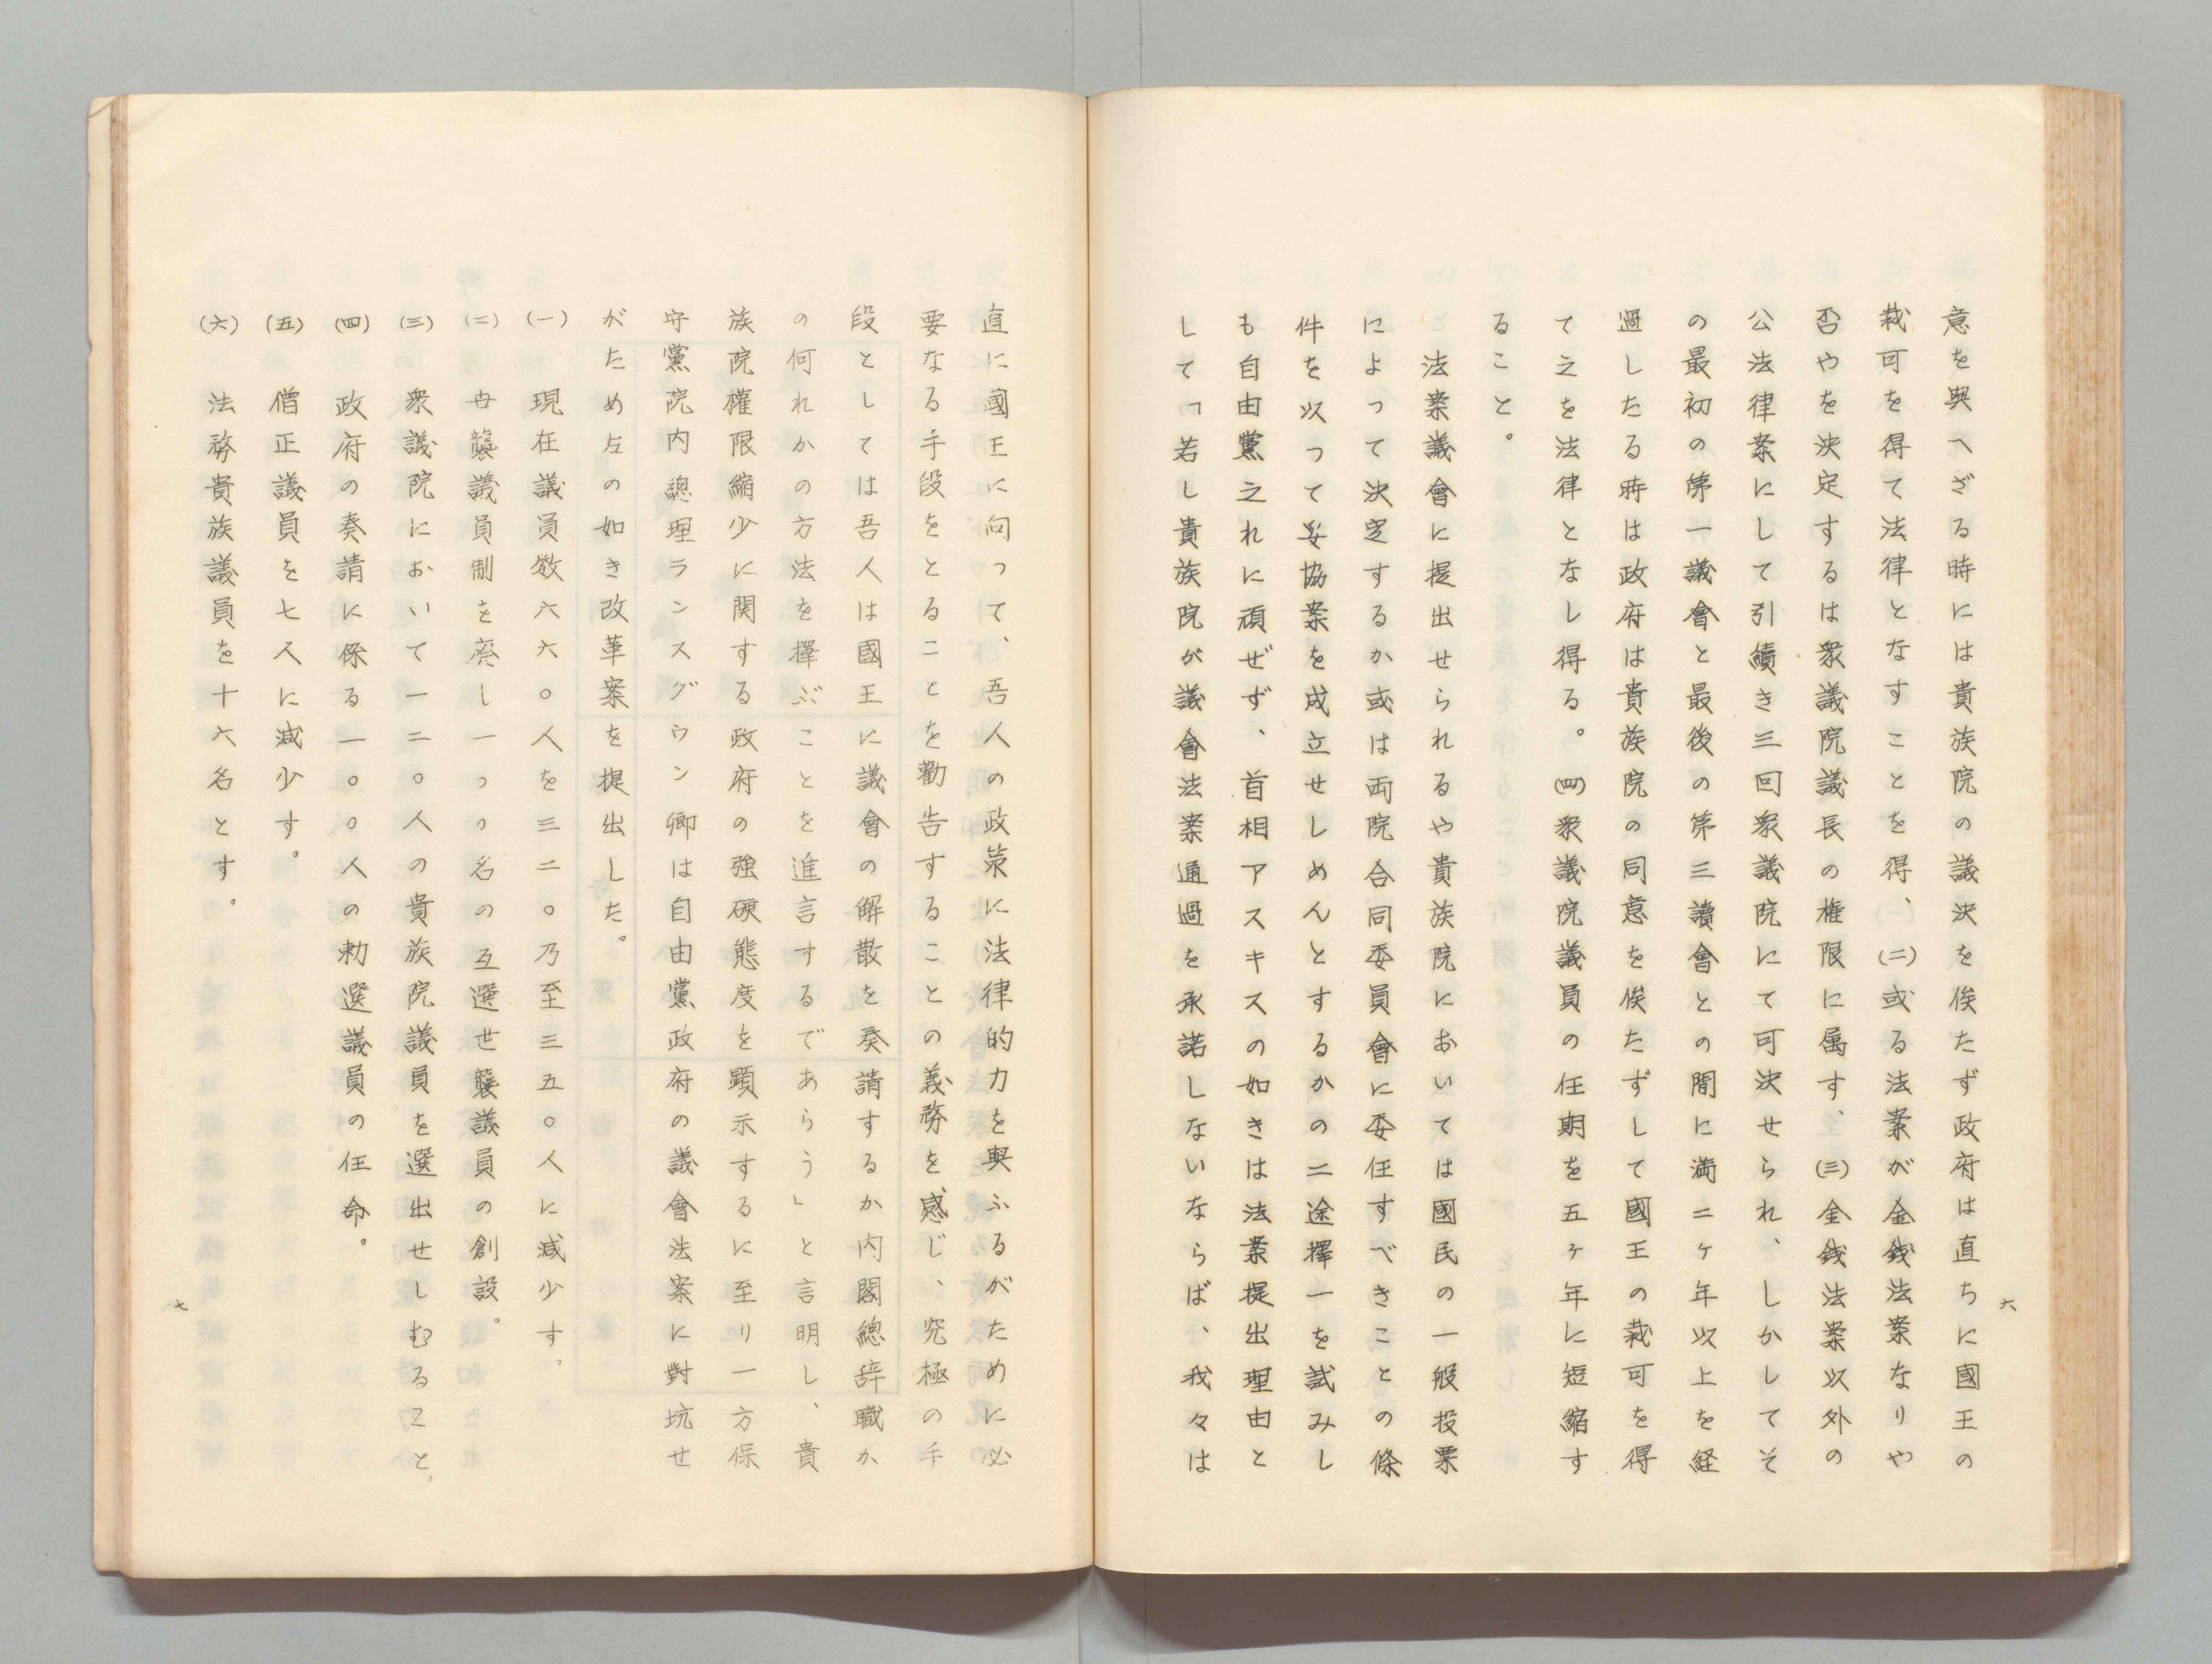 六
意を與へざる時には貴族院の議決を俟たず政府は直ちに國王の
裁可を得て法律となすことを得、(二)或る法案が金銭法案なりや
否やを決定するは衆議院議長の権限に属す、(三)金銭法案以外の
公法律案にして引續き三回衆議院にて可決せられ、しかしてそ
の最初の第一議會と最後の第三讀會との間に満二ケ年以上を経
過したる時は政府は貴族院の同意を俟たずして國王の裁可を得
て之を法律となし得る。(四)衆議院議員の任期を五ヶ年に短縮す
ること。
法案議會に提出せられるや貴族院においては國民の一般投票
によって決定するか或は両院合同委員會に委任すべきことの條
件を以って妥協案を成立せしめんとするかの二途擇一を試みし
も自由黨之れに頑ぜず、首相アスキスの如きは法案提出理由と
して「若し貴族院が議會法案通過を承諾しないならば、我々は
直に國王に向って、吾人の政策に法律的力を與ふるがために必
要なる手段をとることを勸告することの義務を感じ、究極の手
段としては吾人は國王に議會の解散を奏請するか内閣總辞職か
の何れかの方法を擇ぶことを進言するであらう」と言明し、貴
族院權限縮少に関する政府の強硬態度を顕示するに至り一方保
守黨院内總理ランスダウン卿は自由黨政府の議會法案に對坑せ
がため左の如き改革案を提出した。
(一) 現在議員数六六〇人を三二〇乃至三五〇人に減少す。
(二) 世襲議員制を廃し一つの名の互選世襲議員の創設。
(三) 衆議院において一二〇人の貴族院議員を選出せしむること。
(四) 政府の奏請に係る一〇〇人の勅選議員の任命。
(五) 僧正議員を七人に減少す。
(六) 法務貴族議員を十六名とす。
七